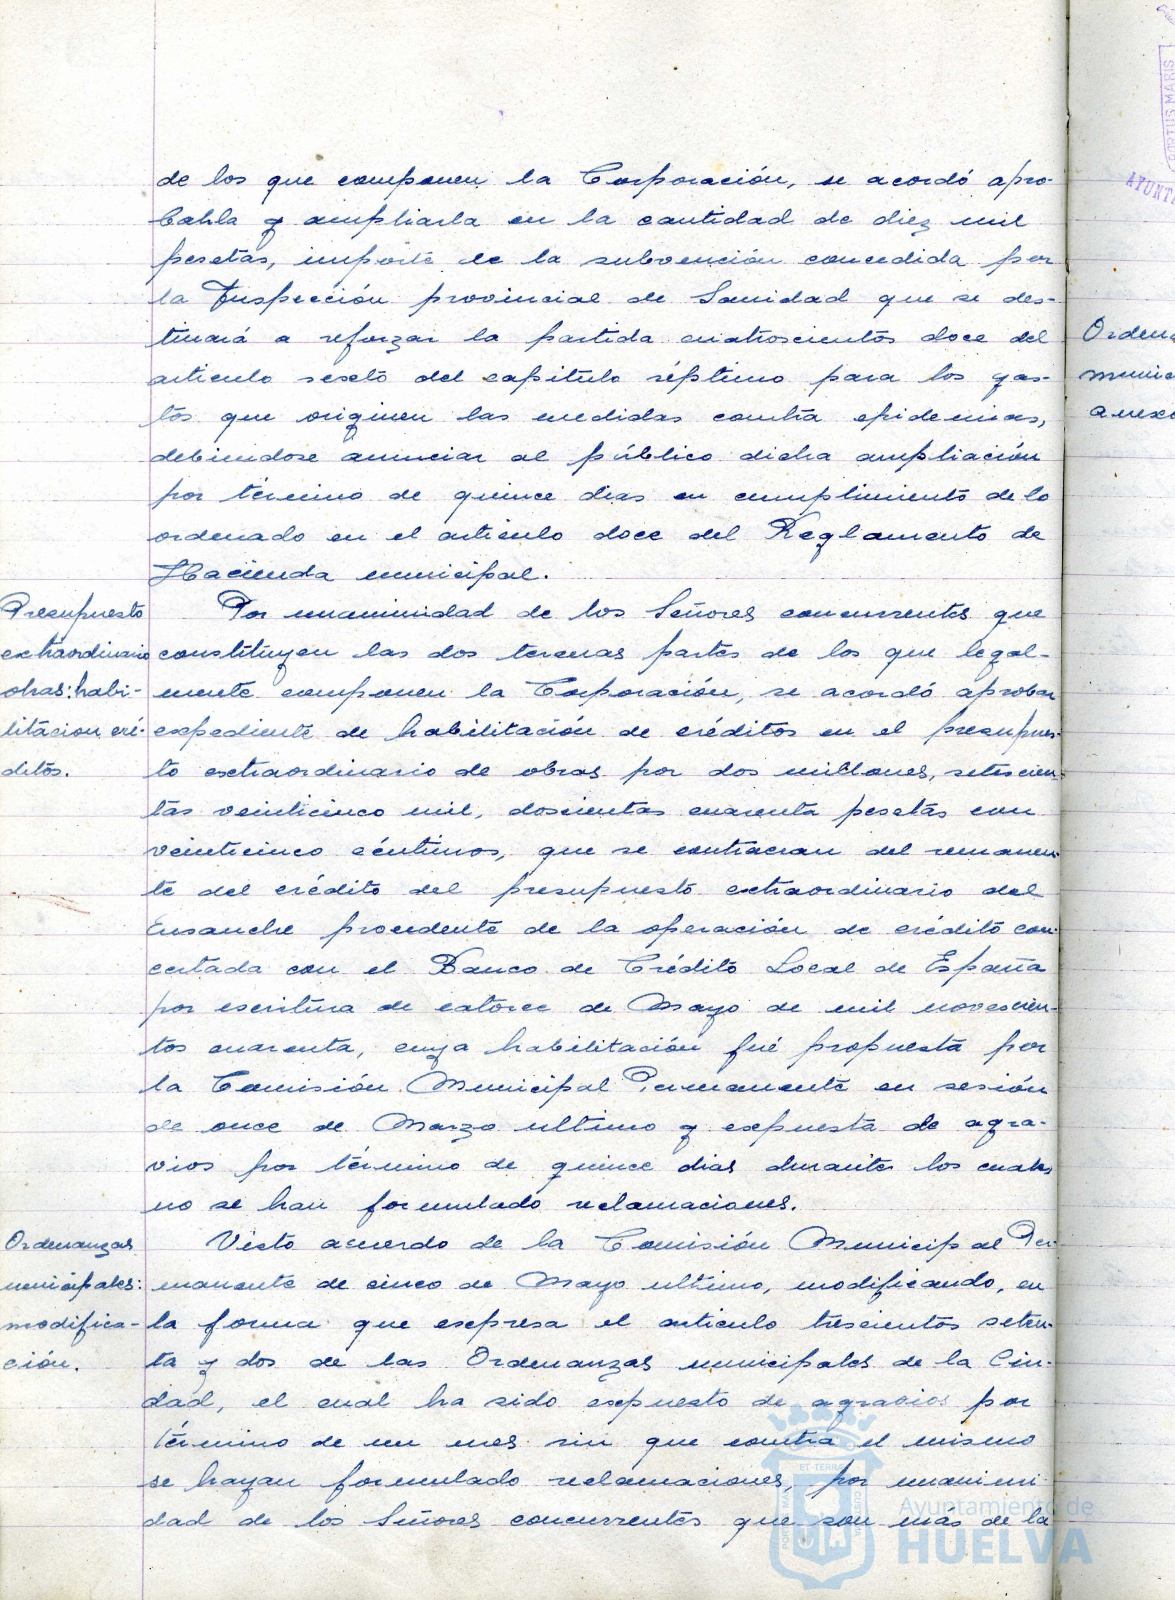 de los que componen la Corporación, se acordó apro-
barla y ampliarla en la cantidad de diez mil
pesetas, importe de la subvención concedida por
la Inspección provincial de Sanidad que se des-
tinará a reforzar la partida cuatroscientos doce del
articulo sexto del capitulo séptimo para los gas-
tos que originen las medidas contra epidemias,
debiendose anunciar al público dicha ampliación
por término de quince dias en cumplimiento de lo
ordenado en el articulo doce del Reglamento de
Hacienda municipal.
Presupuesto
extraordinario
obras: habi-
litacion cré-
ditos.
Por unanimidad de los Señores concurrentes que
constituyen las dos terceras partes de los que legal-
mente componen la Corporación, se acordó aprobar
expediente de habilitación de créditos en el presupues-
to extraordinario de obras por dos millones, setescien-
tas veinticinco mil, doscientas cuarenta pesetas con
veinticinco céntimos, que se contraeran del remanen-
te del crédito del presupuesto extraordinario del
Ensanche procedente de la operación de crédito con-
certada con el Banco de Crédito Local de España
por escritura de catorce de Mayo de mil novescien-
tos cuarenta, cuya habilitación fué propuesta por
la Comisión Municipal Permanente en sesión
de once de Marzo ultimo y expuesta de agra-
vios por término de quince dias durante los cuales
no se han formulado reclamaciones.
Ordenanzas
municipales:
modifica-
ción.
Visto acuerdo de la Comisión Municipal Per-
manente de cinco de Mayo ultimo, modificando, en
la forma que expresa el articulo trescientos seten-
ta y dos de las Ordenanzas municipales de la Ciu-
dad, el cual ha sido expuesto de agravios por
término de un mes sin que contra el mismo
se hayan formulado reclamaciones, por unanimi-
dad de los Señores concurrentes que son más de la
Ordena
munic
anexo
PORTUS MARIS
AYUNTA
Ayuntamiento de
HUELVA